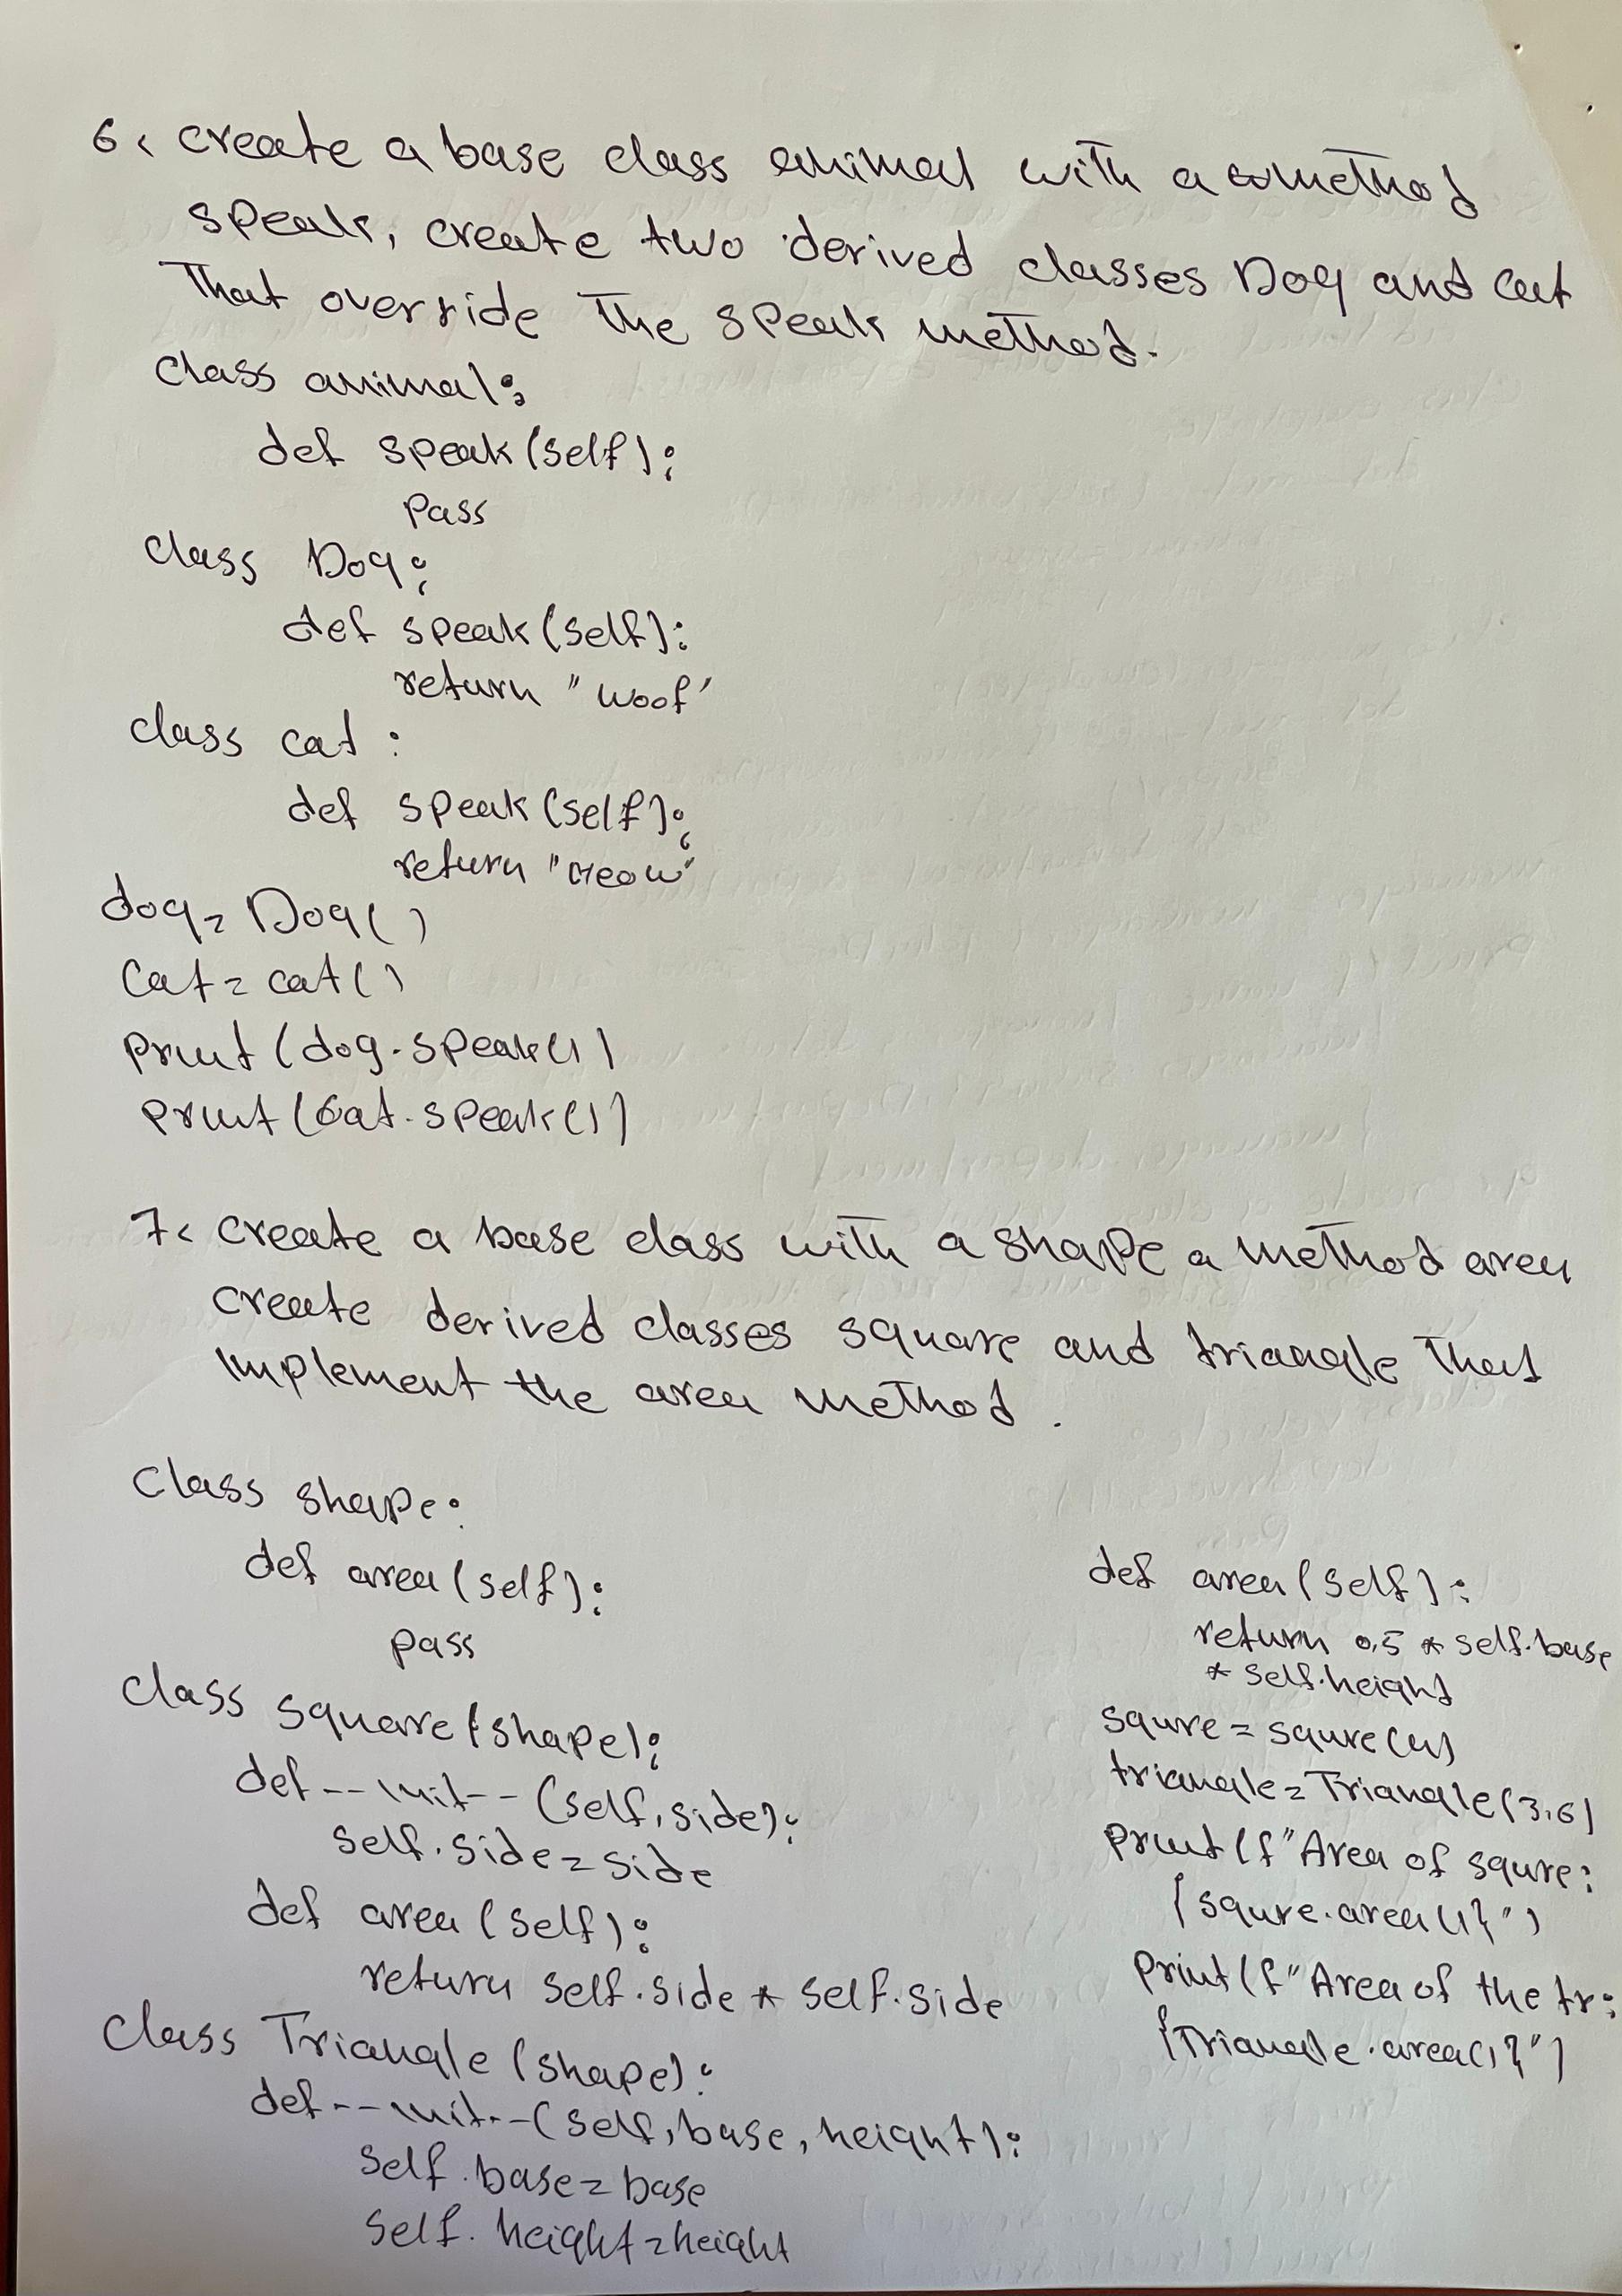 6. create a base class animal with a method
speak, create two derived classes Dog and cat
That override The speak method.
class animal:
def speak(self):
pass
class Dog:
def speak(self):
return "woof"
class cat :
def speak(self):
return "Meow"
dog = Dog()
cat = cat()
print(dog.speak())
print(cat.speak())
7. create a base class with a shape a method area
create derived classes square and triangle That
implement the area method.
class shape:
def area(self):
pass
class square(shape):
def --init--(self, side):
self.side = side
def area(self):
return self.side * self.side
class Triangle(shape):
def --init--(self, base, height):
self.base = base
self.height = height
def area(self):
return 0.5 * self.base
* self.height
squre = squre(4)
triangle = Triangle(3,6)
print(f"Area of squre:
{squre.area()}")
print(f"Area of the tr:
{Triangle.area()}")